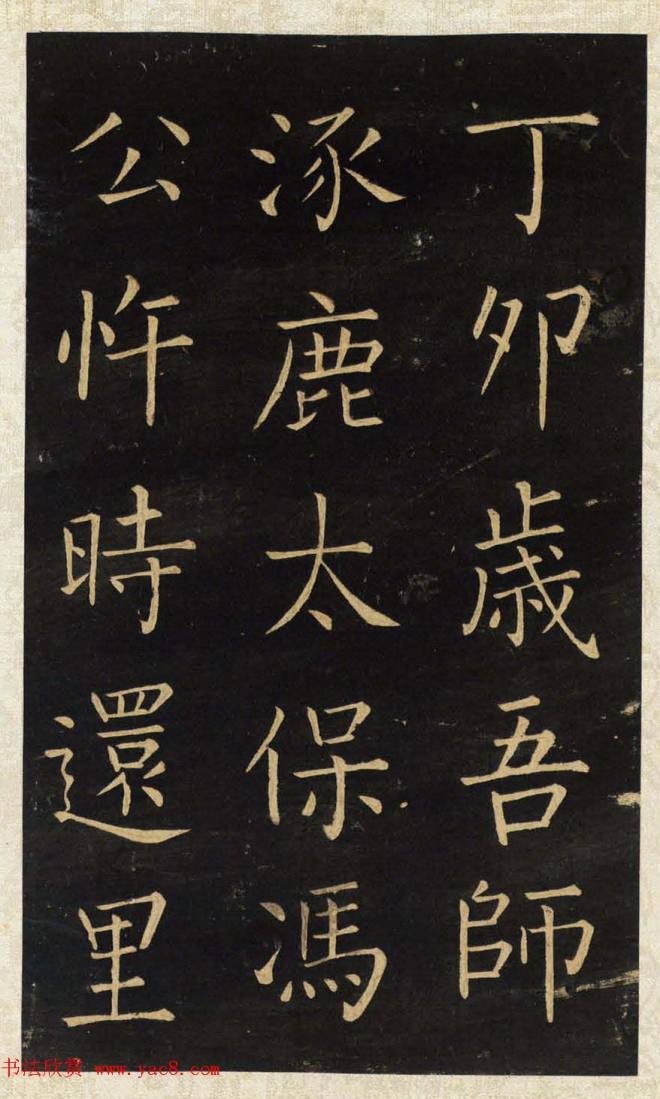 丁卯歲吾師
涿鹿太保馮
公忤時還里
书法欣赏 www.yac8.com